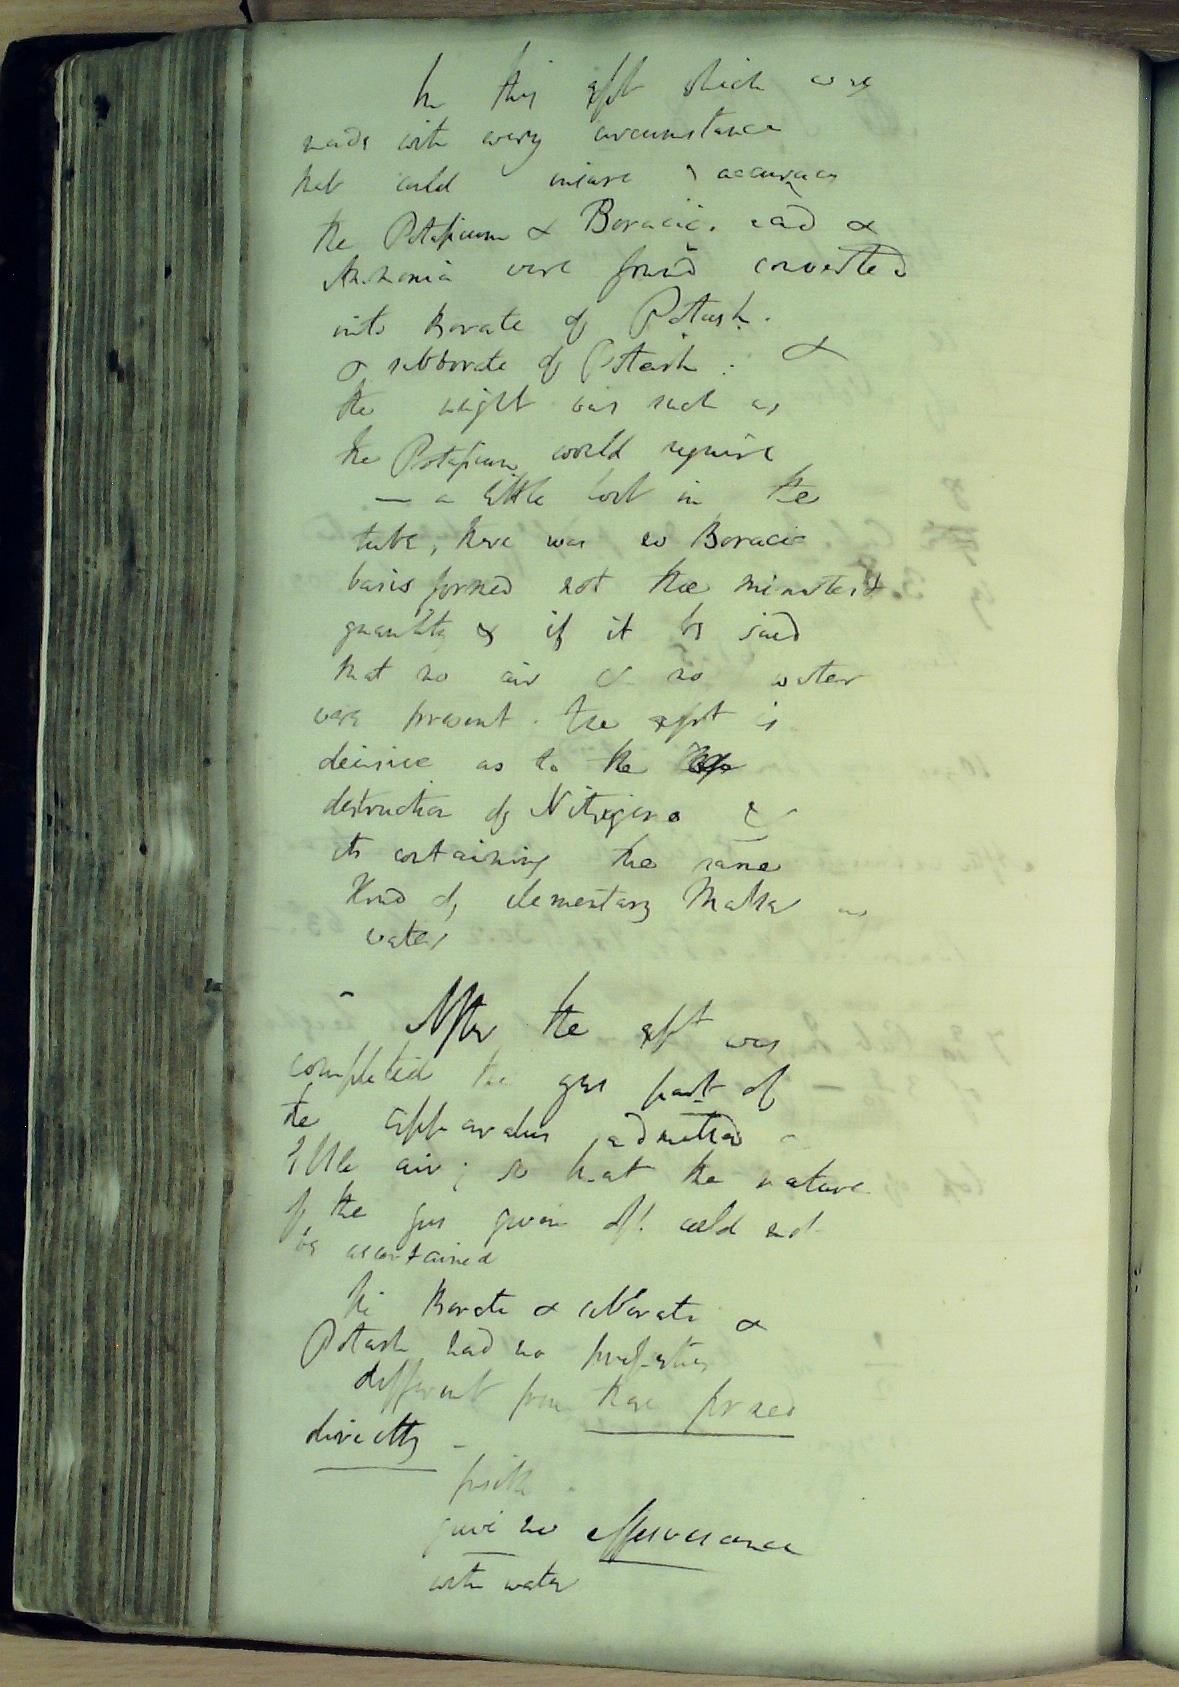 In this expt which was
made with every circumstance
that could insure accuracy
the Potassium & Boracic acid &
Ammonia were found converted
into Borate of Potash.
& subborate of Potash : &
the weight was such as
the Potassium would require
— a little lost in the
tube, there was no Boracic
basis formed not the minutest
quantity & if it be said
that no air & no water
were present. the expt is
decisive as to the
destruction of Nitrogen &
its containing the same
kind of elementary Matter as
water
- After the expt was
completed the gas part of
the apparatus admitted a
little air; so that the nature
of the gas given off could not
be ascertained
the Borate & subborate &
Potash had no properties
different from those formed
directly -
gave no effervescence
with water